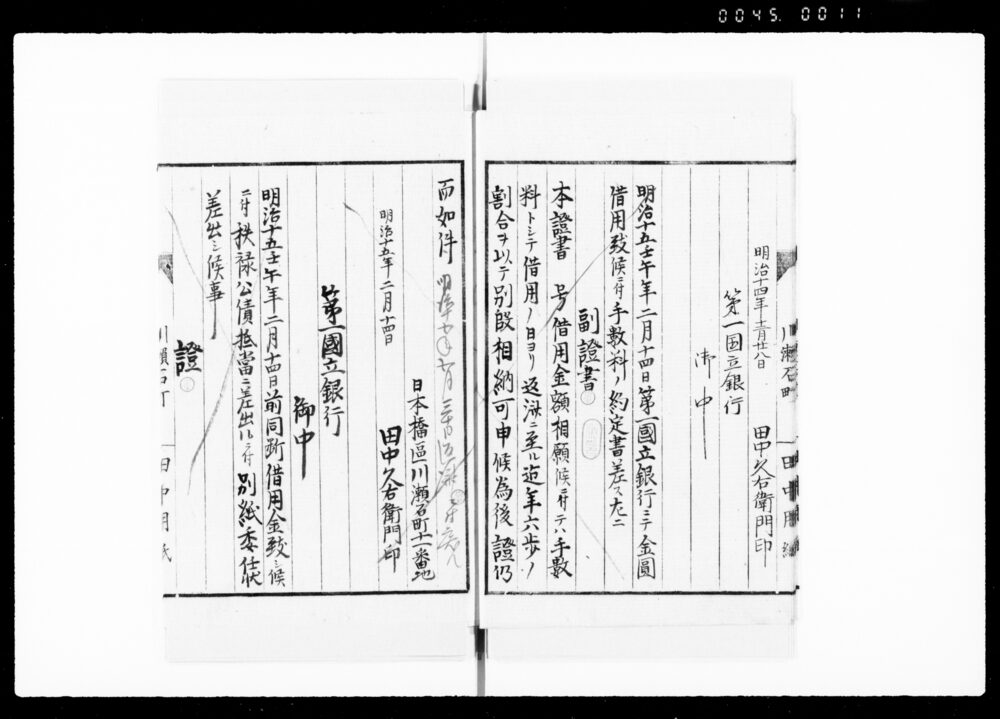 0045. 0011
川瀬石町 田中用紙
明治十四年十二月廿八日 田中久右衛門印
第一国立銀行
御中
明治十五壬午年二月十四日第一國立銀行ニテ金圓
借用致候ニ付手数料ノ約定書差ス左ニ
副證書
本證書 号借用金額相願候ニ付テハ手數
料トシテ借用ノ日ヨリ返済ニ至ル迠年六歩ノ
割合ヲ以テ別段相納可申候為後證仍
而如件
日本橋區川瀬石町十一番地
明治十五年二月十四日 田中久右衛門印
第一國立銀行
御中
明治十五壬午年二月十四日前同断借用金致シ候
ニ付秩禄公債抵當ニ差出ルニ付別紙委任状
差出シ候事
證
川瀬石町 田中用紙